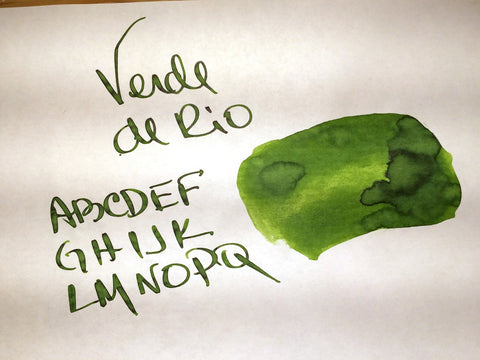 Verde
de Rio
ABCDEF
GHIJK
LMNOPQ